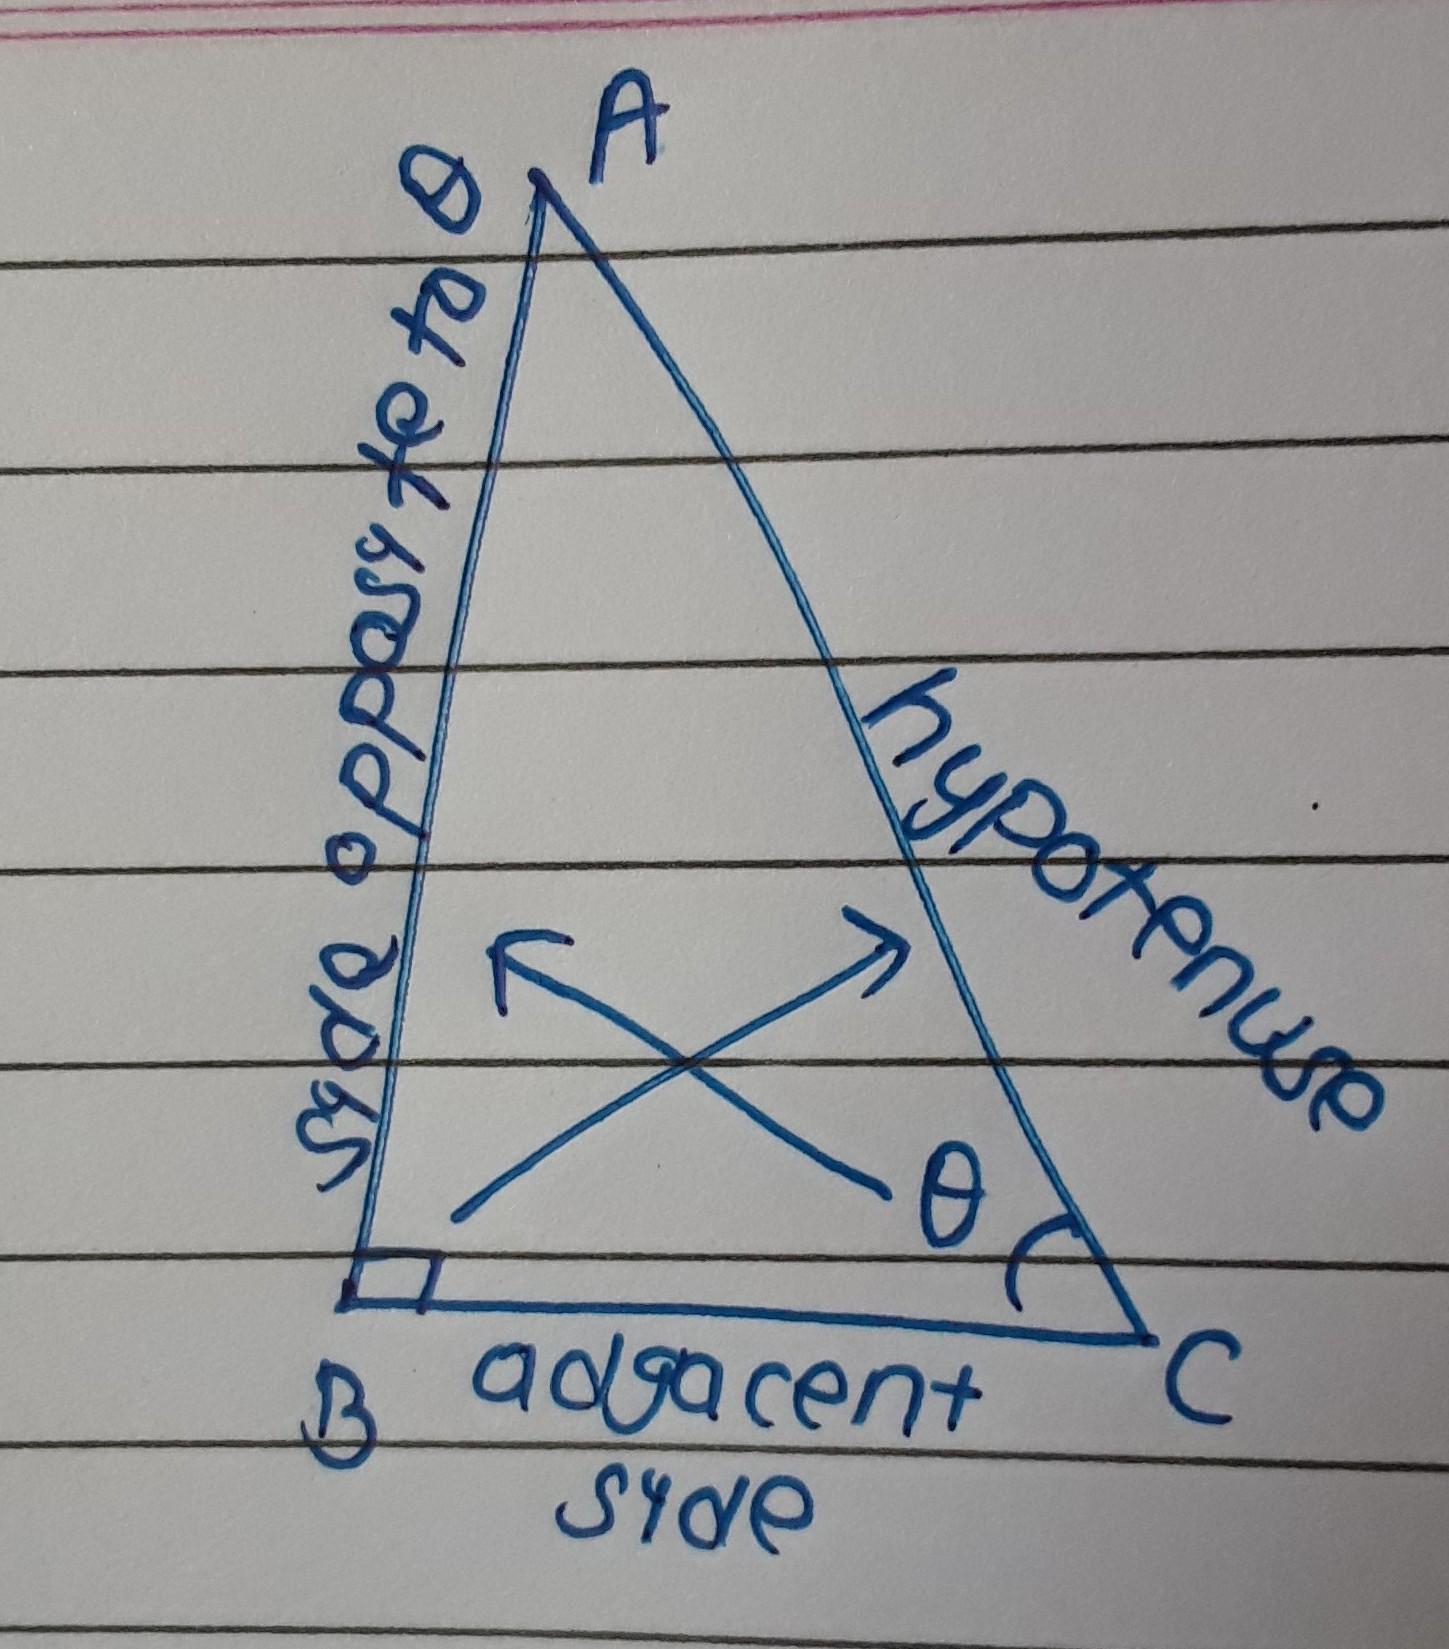 A
syde oppasyte to θ
hypotenuse
θ
B
C
adgacent
syde